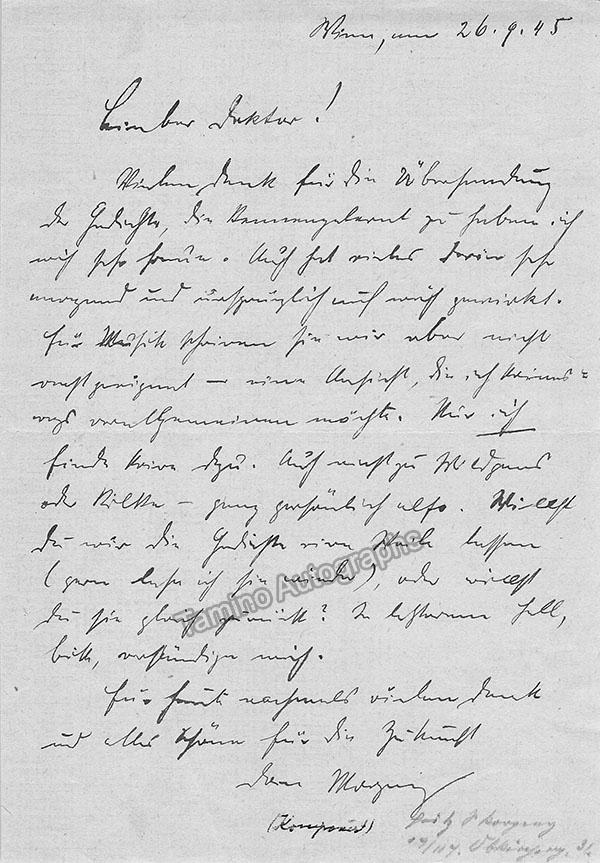 Wien, am 26.9.45
Lieber Doktor!
Vielen Dank für die Übersendung
der Gedichte, die kennengelernt zu haben ich
mich sehr freue. Auch hat vieles darin sehr
und ursprünglich auf mich gewirkt.
Für Musik scheinen sie mir aber nicht
recht geeignet — eine Ansicht, die ich keines=
wegs verallgemeinern möchte. Nur ich
finde keine dazu. Auch nicht zu Wildgans
oder Rilke — ganz persönlich also. Willst
Du mir die Gedichte eine Weile lassen
(gern lese ich sie wieder), oder willst
Du sie gleich zurück? In letzterem Fall,
bitte, verständige mich.
Für heute nochmals vielen Dank
und alles Schöne für die Zukunft
Dein
(Komponist)
Fritz Skorzeny
Tamino Autographs